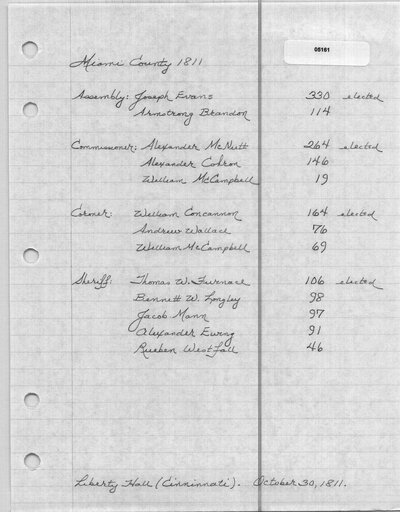 05161
Miami County 1811
Assembly: Joseph Evans 330 elected
Armstrong Brandon 114
Commissioner: Alexander McNutt 264 elected
Alexander Cohron 146
William McCampbell 19
Coroner: William Concannon 164 elected
Andrew Wallace 76
William McCampbell 69
Sheriff: Thomas W. Furnace 106 elected
Bennett W. Longley 98
Jacob Mann 97
Alexander Ewing 91
Rueben Westfall 46
Liberty Hall (Cinninnati). October 30, 1811.